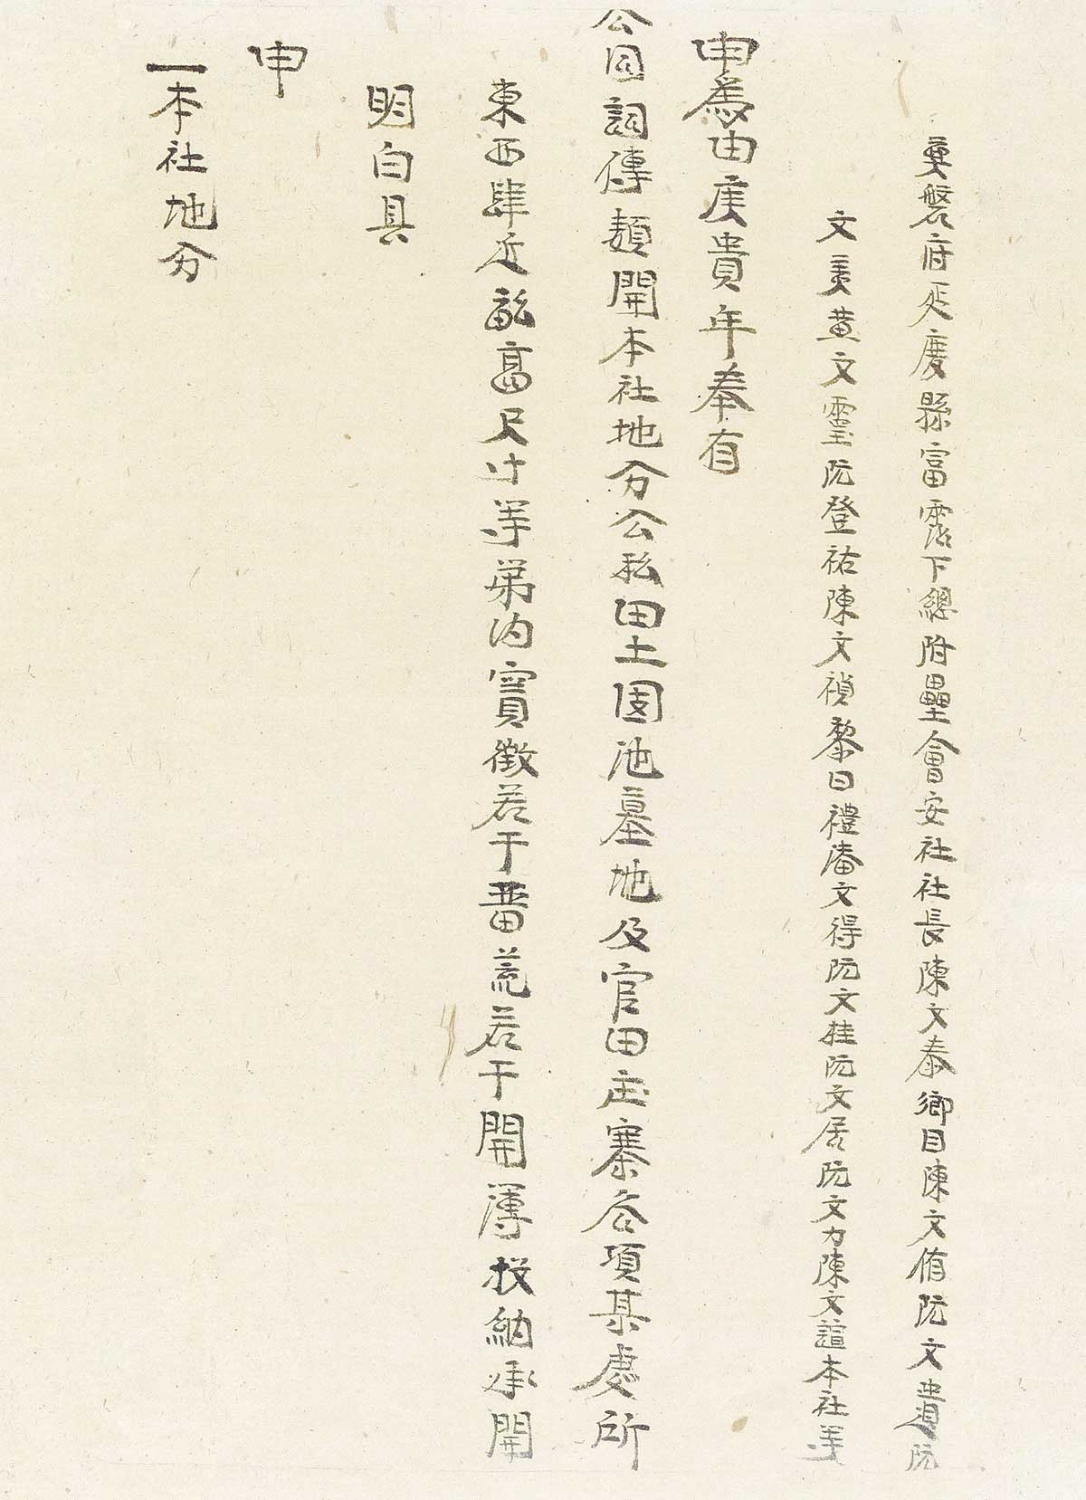 奠磐府延慶縣富霑下總附壘會安社社長陳文泰鄉目陳文脩阮文遺阮
文美黃文靈阮登祐陳文禎黎曰禮潘文得阮文桂阮文居阮文力陳文諠本社等
申為由庚貴年奉有
公同詞傳類開本社地分公私田土園池墓地及官田庄寨各項某處所
東西肆近畝高尺寸等第內實徵若干畨荒若干開簿投納承開
明白具
申
一本社地分